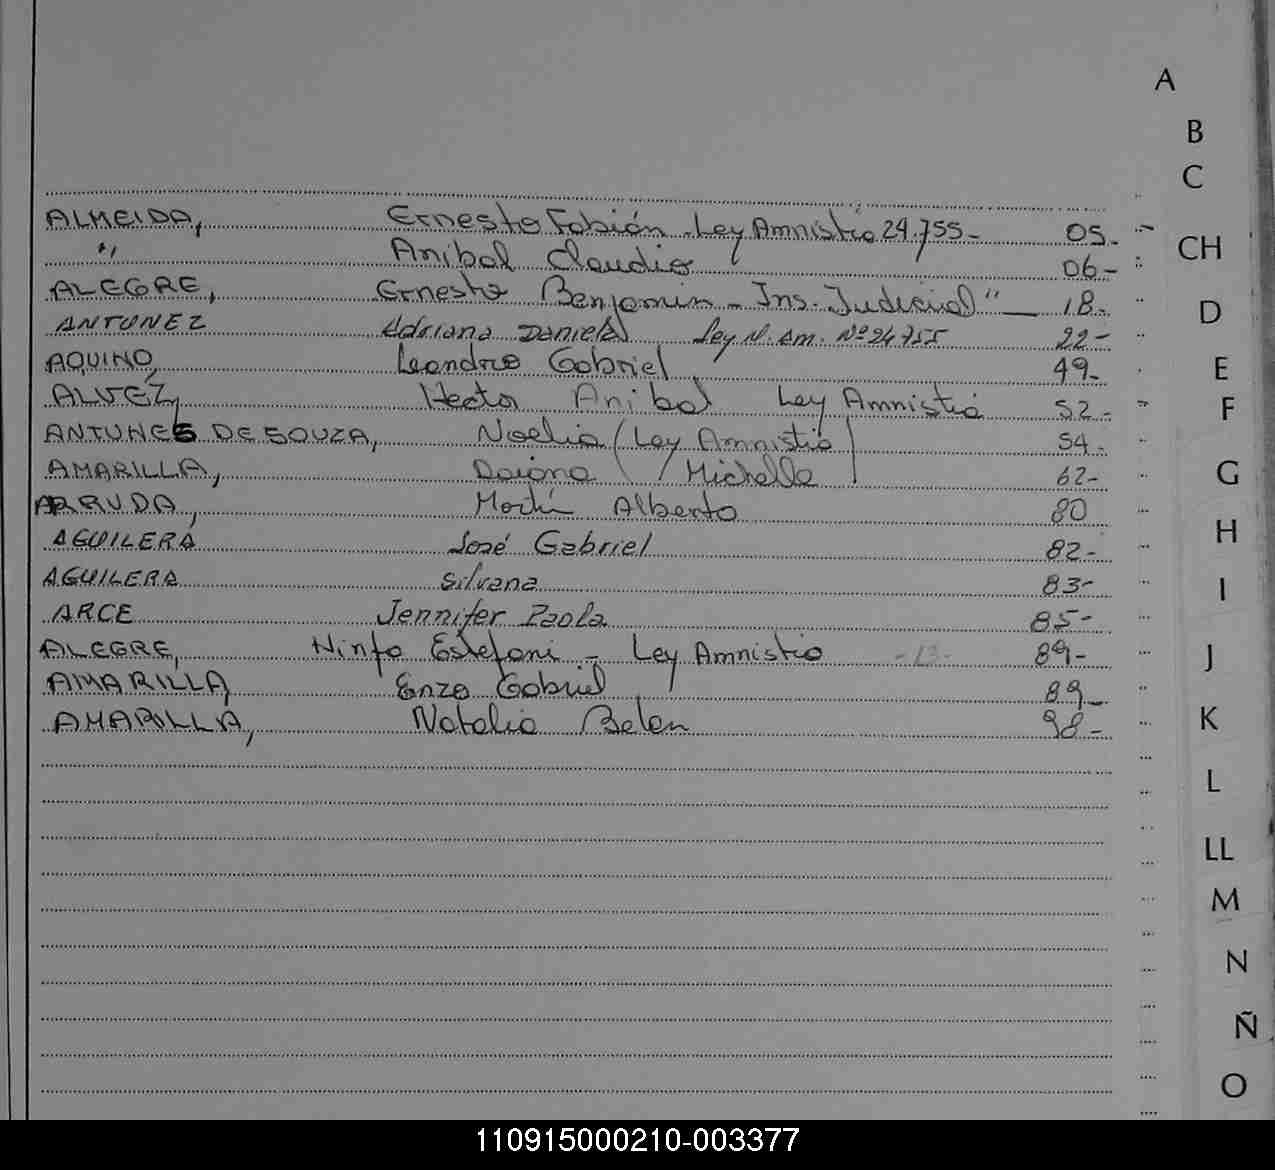 ALMEIDA, Ernesto Fabián - Ley Amnistia 24.755 - 05.
" Anibal Claudio 06-
ALEGRE, Ernesto Benjamin - Ins. Judicial" — 18.
ANTUNEZ Adriana Daniela Ley N. Am. Nº 24755 22-
AQUINO, Leandro Gabriel 49-
ALVEZ, Hector Anibal Ley Amnistia 52-
ANTUNES DE SOUZA, Noelia (Ley Amnistia) 54-
AMARILLA, Daiana Michelle 62-
ARRUDA, Martín Alberto 80
AGUILERA José Gabriel 82-
AGUILERA Silvana 83-
ARCE Jennifer Paola 85-
ALEGRE, Ninfa Estefani - Ley Amnistia -13- 89-
AMARILLA, Enzo Gabriel 89-
AMARILLA, Natalia Belen 98-
A
B
C
CH
D
E
F
G
H
I
J
K
L
LL
M
N
Ñ
O
110915000210-003377